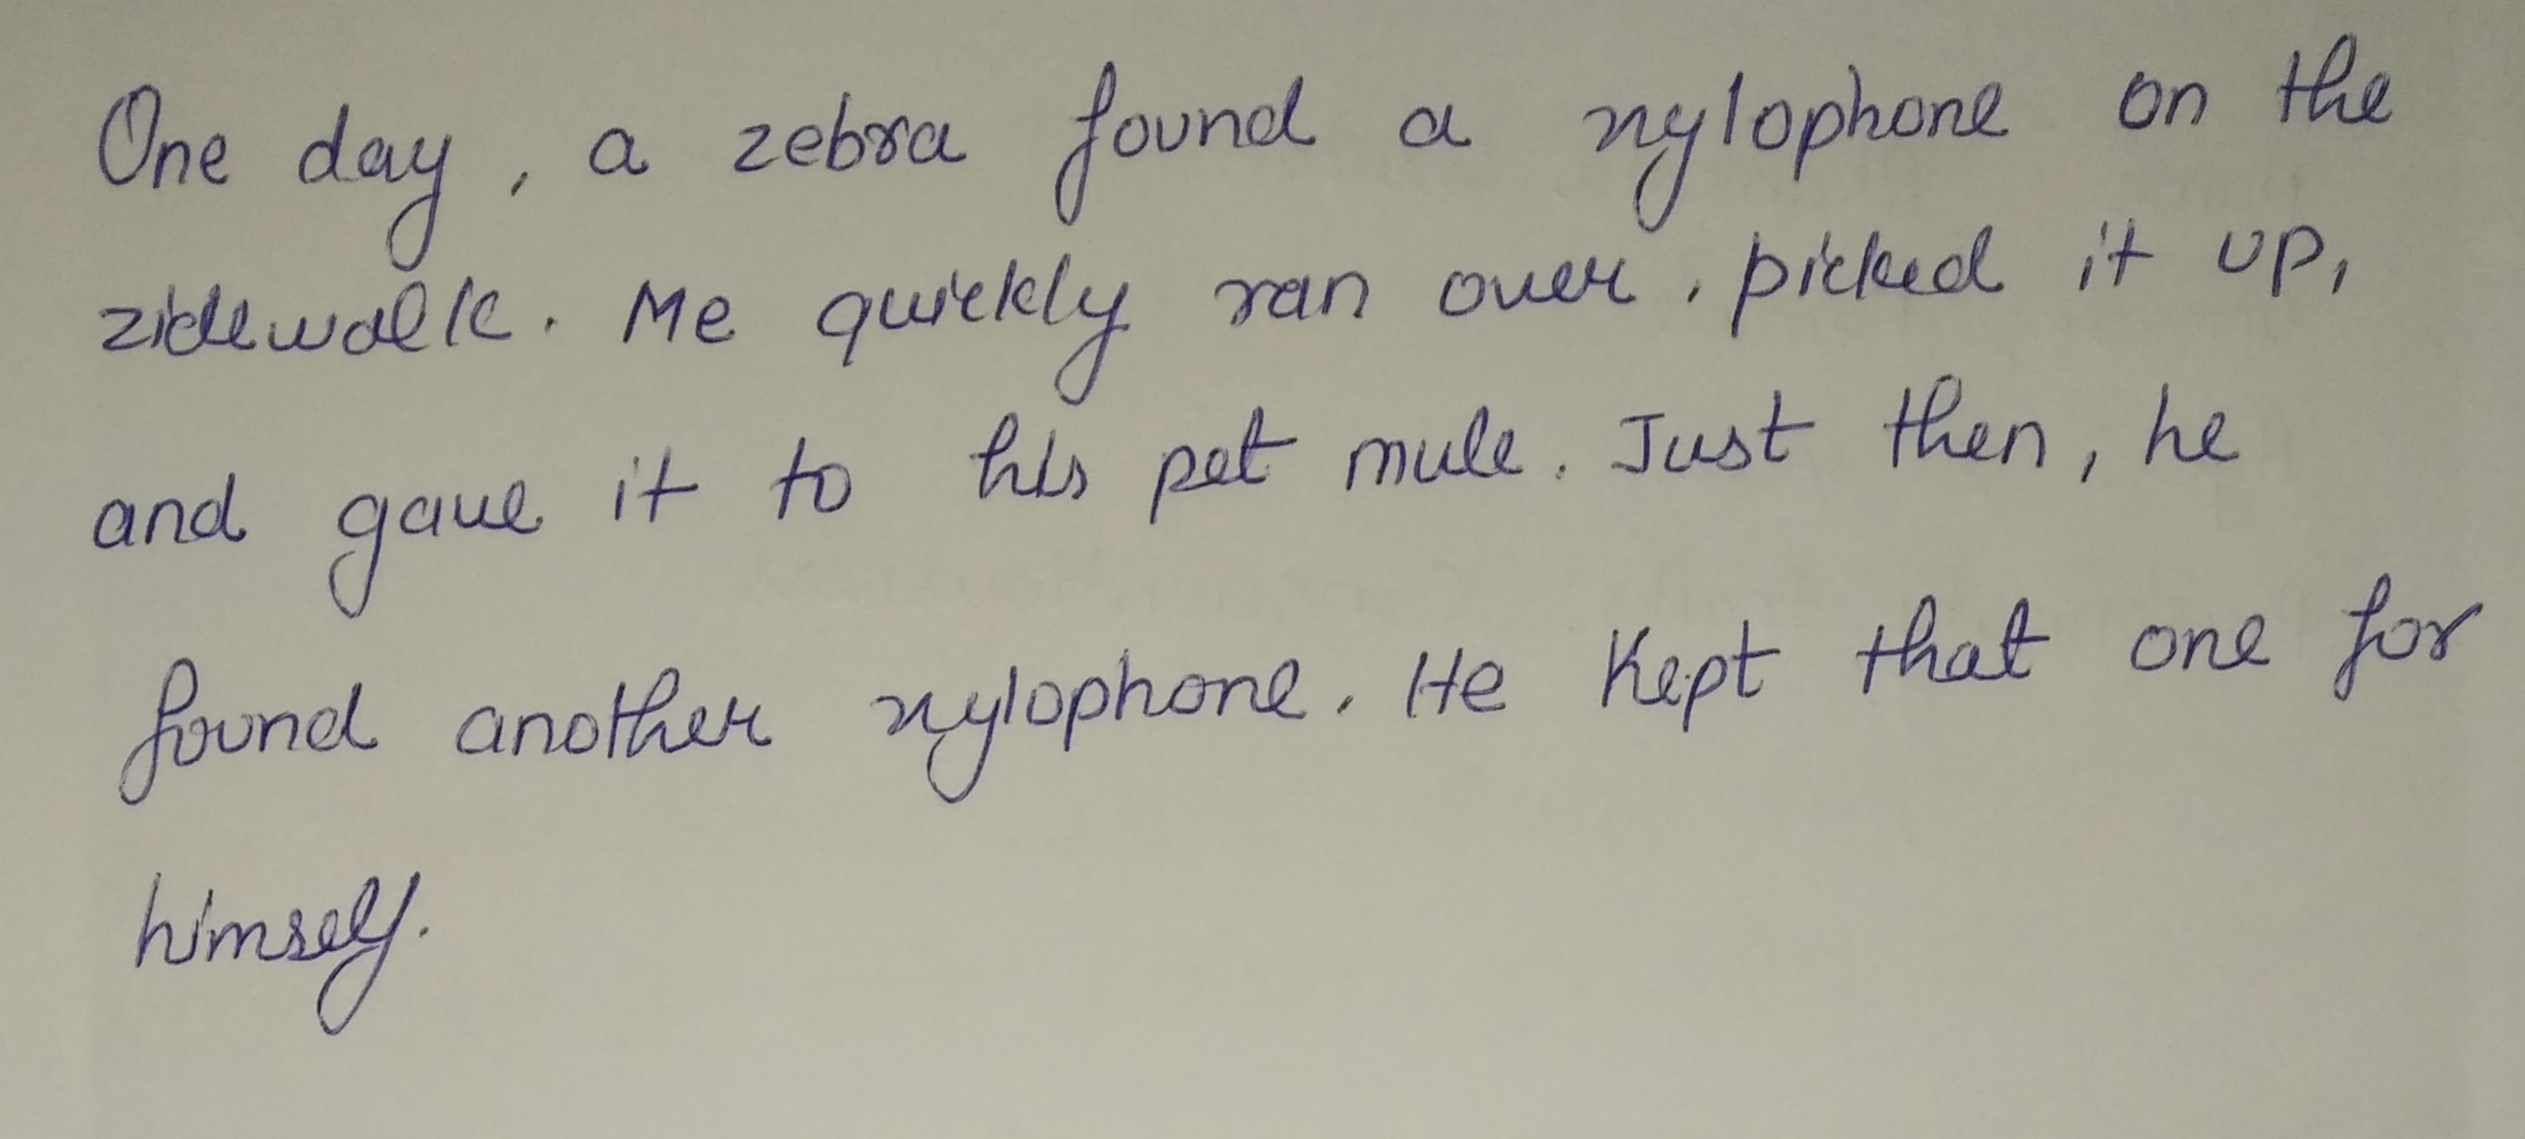 One day, a zebra found a xylophone on the
zidewalk. Me quickly ran over, picked it up,
and gave it to his pet mule. Just then, he
found another xylophone. He kept that one for
himself.